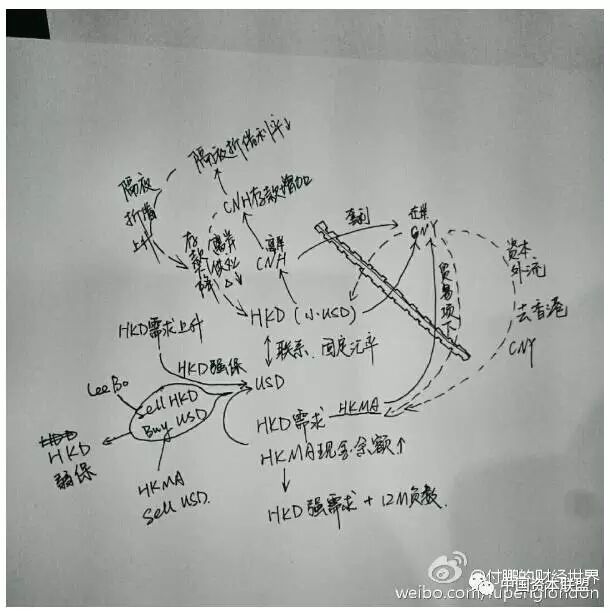 隔夜拆借利率↓
隔夜
拆借
上升
CNH存款增加
存款
降
离岸
CNH
套利
在岸
CNY
贸易项下
资本
外流
去香港
CNY
HKD (小USD)
联系、固定汇率
HKD需求上升
HKD强保
USD
Lee Bo
Sell HKD
Buy USD
HKD
弱保
HKMA
Sell USD.
HKD需求
HKMA
HKMA现金余额↑
HKD强需求 + 12M负数.
@付鹏的财经世界
中国资本联盟
weibo.com/fupenglondon